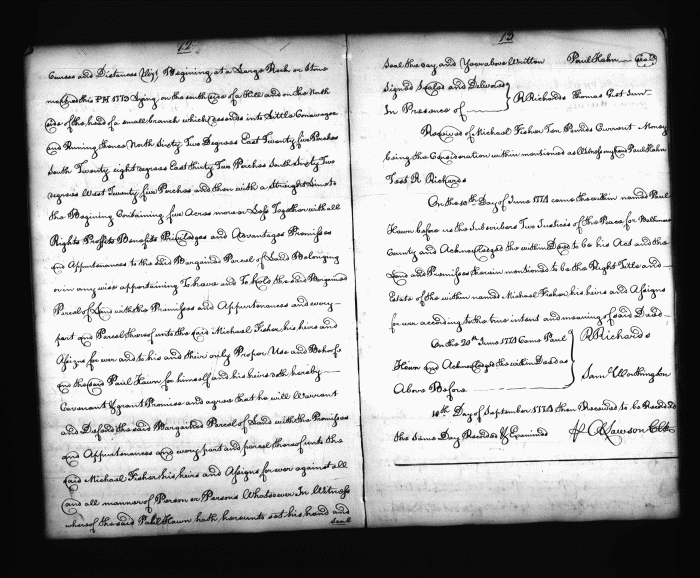 12
Courses and Distances Viz Begining at a Large Rock or Stone
marked this PH 1773 Lying on the south side of a Hill and on the North
side of the head of a small branch which descends into Little Conawagoe
and Runing thence North Sixty Two Degrees East Twenty five Perches
South Twenty eight degrees East thirty Two Perches South Sixty Two
degrees West Twenty five Perches and then with a Straight Line to
the Begining Containing five Acres more or Less Together with all
Rights Profits Benefits Priviledges and Advantages Premisses
and Appurtenances to the said Bargained Parcel of Land Belonging
or in any wise appertaining To have and To hold the said Bargained
Parcel of Land with the Premisses and Appurtenances and every
part and Parcel thereof unto the said Michael Fisher his heirs and
Assigns for ever and to his and their only Proper Use and Behoofe
and the said Paul Hawn for himself and his heirs doth hereby
Covenant & grant Promise and agree that he will Warrant
and Defend the said Bargained Parcel of Land with the Premisses
and Appurtenances and every part and parcel thereof unto the
said Michael Fisher his heirs and Assigns for ever against all
and all manner of Person or Persons Whatsoever In Witness
whereof the said Paul Hawn hath hereunto set his hand and
Seal
13
Seal the day and Year above Written Paul Hahn Seal
Signed Sealed and Delivered
In Presence of
R Richards Thomas Gist Junr
Received of Michael Fisher Ten Pounds Current Money
being the Consideration within mentioned as Witness my hand Paul Hahn
Test R Richards
On the 20th Day of June 1774 came the within named Paul
Hawn before us the Subscribers Two Justices of the Peace for Baltimore
County and Acknowledged the within Deed to be his Act and the
Land and Premisses therein mentioned to be the Right Title and
Estate of the within named Michael Fisher his heirs and Assigns
for ever according to the true intent and meaning of said Deed
On the 20th June 1774 Came Paul
Hawn and Acknowledged the within Deed as
Above Before
R Richards
Saml Worthington
10th Day of September 1774 then Received to be Recorded
the same Day Recorded & Examined
Lawson Clk